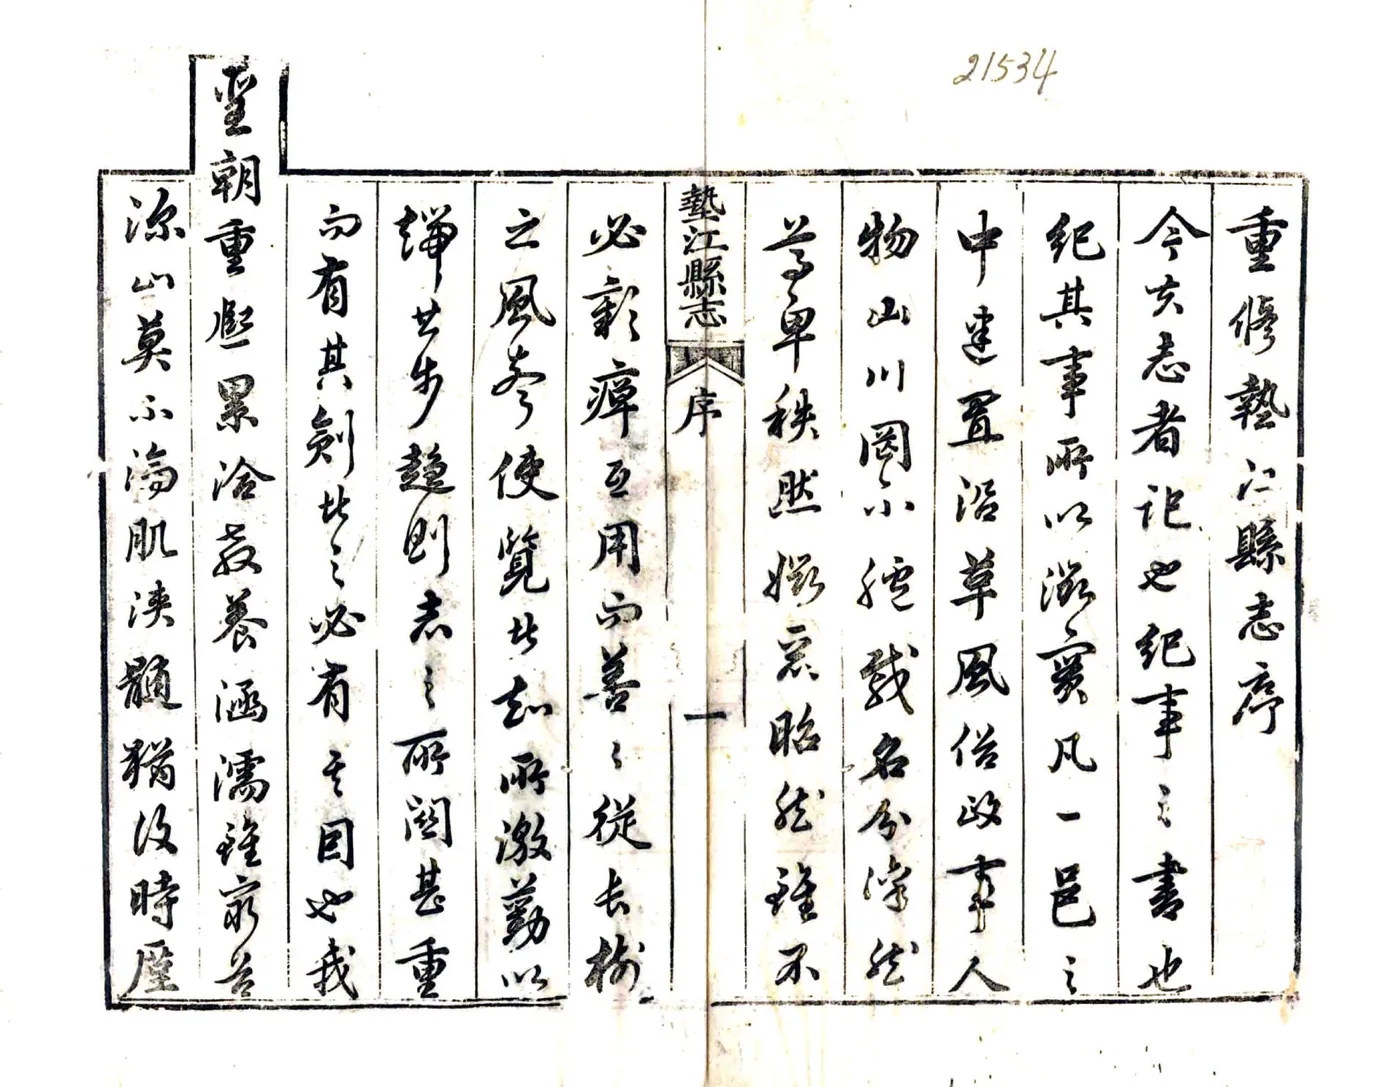 21534
重修墊江縣志序
今夫志者記也紀事之書也
紀其事所以徵實凡一邑之
中建置沿革風俗政事人
物山川罔不臚載名分懍然
尊卑秩然媺惡昭然雖不
墊江縣志
序
一
必彰癉互用而善善從長樹
之風聲使覽者知所激勸以
端其步趨則志之所關甚重
而有其創者之必有其因也我
聖朝重熙累洽教養涵濡雖窮谷
深山莫不淪肌浹髓猶復時廑